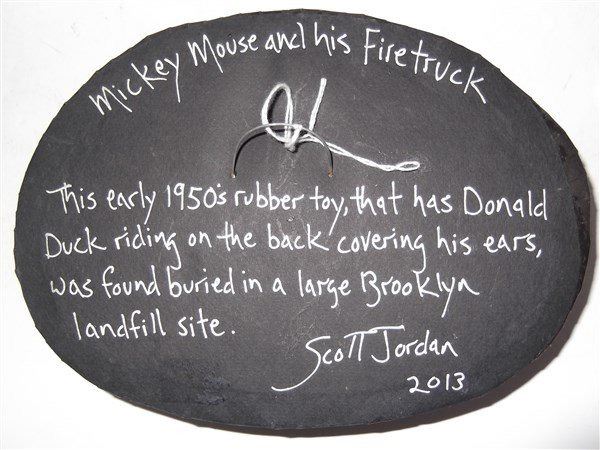 Mickey Mouse and his Firetruck
This early 1950's rubber toy, that has Donald
Duck riding on the back covering his ears,
was found buried in a large Brooklyn
landfill site.
Scott Jordan
2013